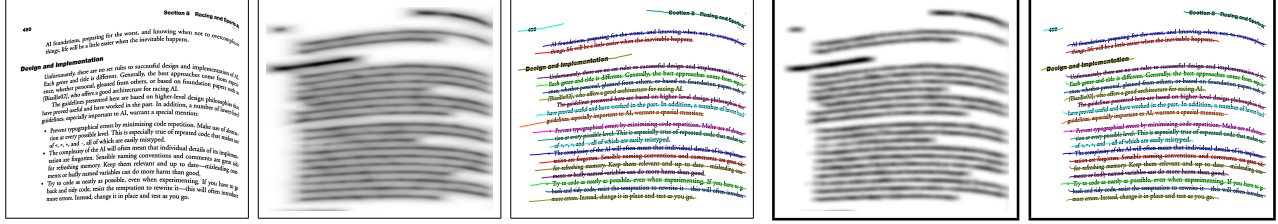 Section 8 Racing and Sports
490
AI foundations, preparing for the worst, and knowing when not to overcomplicate
things, life will be a little easier when the inevitable happens.
Design and Implementation
Unfortunately, there are no set rules to successful design and implementation of
Each genre and title is different. Generally, the best approaches come from
ence, whether personal, gleaned from others, or based on foundation papers
[Biasillo02], who offers a good architecture for racing AI.
The guidelines presented here are based on higher-level design philosophies
have proved useful and have worked in the past. In addition, a number of
guidelines, especially important to AI, warrant a special mention:
• Prevent typographical errors by minimizing code repetition. Make use of
tion at every possible level. This is especially true of repeated code that makes
of <, +, and −, all of which are easily mistyped.
• The complexity of the AI will often mean that individual details of its
tation are forgotten. Sensible naming conventions and comments are great
for refreshing memory. Keep them relevant and up to date—misleading
ments or badly named variables can do more harm than good.
• Try to code as neatly as possible, even when experimenting. If you have
back and tidy code, resist the temptation to rewrite it—this will often introduce
more errors. Instead, change it in place and test as you go.